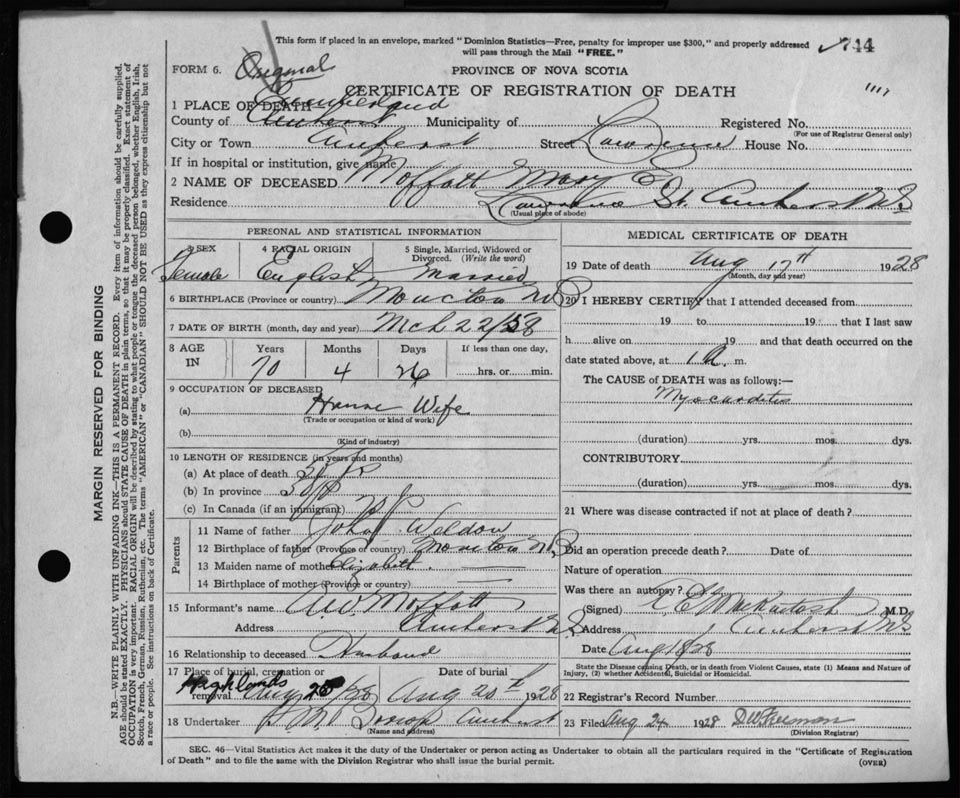 This form if placed in an envelope, marked "Dominion Statistics—Free, penalty for improper use $300," and properly addressed
will pass through the Mail "FREE."
744
FORM 6. Original
PROVINCE OF NOVA SCOTIA
CERTIFICATE OF REGISTRATION OF DEATH
1 PLACE OF DEATH Cumberland
County of Amherst Municipality of Registered No.
(For use of Registrar General only)
City or Town Amherst Street Lawrence House No.
If in hospital or institution, give name
2 NAME OF DECEASED Moffatt Mary E
Residence Lawrence St. Amherst N.S.
(Usual place of abode)
PERSONAL AND STATISTICAL INFORMATION
3 SEX 4 RACIAL ORIGIN 5 Single, Married, Widowed or
Divorced. (Write the word)
Female English Married
6 BIRTHPLACE (Province or country) Moncton NB
7 DATE OF BIRTH (month, day and year) Mch 22/58
8 AGE IN Years Months Days If less than one day,
70 4 26 hrs. or min.
9 OCCUPATION OF DECEASED
(a) House Wife
(Trade or occupation or kind of work)
(b)
(Kind of industry)
10 LENGTH OF RESIDENCE (in years and months)
(a) At place of death
(b) In province
(c) In Canada (if an immigrant)
Parents
11 Name of father John Weldon
12 Birthplace of father (Province or country) Moncton NB
13 Maiden name of mother Elizabeth
14 Birthplace of mother (Province or country)
15 Informant's name Moffatt
Address Amherst NS
16 Relationship to deceased Husband
17 Place of burial, cremation or Date of burial
removal Highlands Aug 20th 1928
18 Undertaker Amherst
(Name and address)
MEDICAL CERTIFICATE OF DEATH
19 Date of death Aug 17th 1928
(Month, day and year)
20 I HEREBY CERTIFY that I attended deceased from
19 to 19 that I last saw
h alive on 19 and that death occurred on the
date stated above, at 1 A. m.
The CAUSE OF DEATH was as follows:—
Myocarditis
(duration) yrs. mos. dys.
CONTRIBUTORY
(duration) yrs. mos. dys.
21 Where was disease contracted if not at place of death?
Did an operation precede death? Date of
Nature of operation
Was there an autopsy?
(Signed) MacKintosh M.D.
Address Amherst NS
Date Aug 18 28
State the Disease causing Death, or in death from Violent Causes, state (1) Means and Nature of
Injury, (2) whether Accidental, Suicidal or Homicidal.
22 Registrar's Record Number
23 Filed Aug 24 1928 D W Freeman
(Division Registrar)
SEC. 46—Vital Statistics Act makes it the duty of the Undertaker or person acting as Undertaker to obtain all the particulars required in the "Certificate of Registration
of Death" and to file the same with the Division Registrar who shall issue the burial permit. (OVER)
MARGIN RESERVED FOR BINDING
N.B.—WRITE PLAINLY WITH UNFADING INK—THIS IS A PERMANENT RECORD. Every item of information should be carefully supplied.
AGE should be stated EXACTLY. PHYSICIANS should STATE CAUSE OF DEATH in plain terms, so that it may be properly classified. Exact statement of
OCCUPATION is very important. RACIAL ORIGIN will be described by stating to what people or tongue the deceased person belonged, whether English, Irish,
Scotch, French, German, Russian, Ruthenian, etc. The terms "AMERICAN" or "CANADIAN" SHOULD NOT BE USED as they express citizenship but not
a race or people. See instructions on back of Certificate.